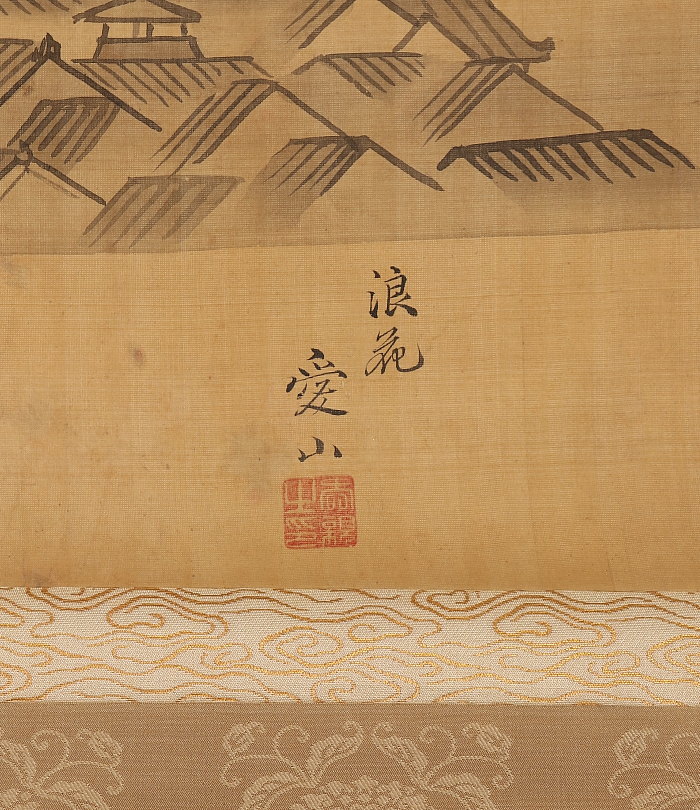 浪花
愛山